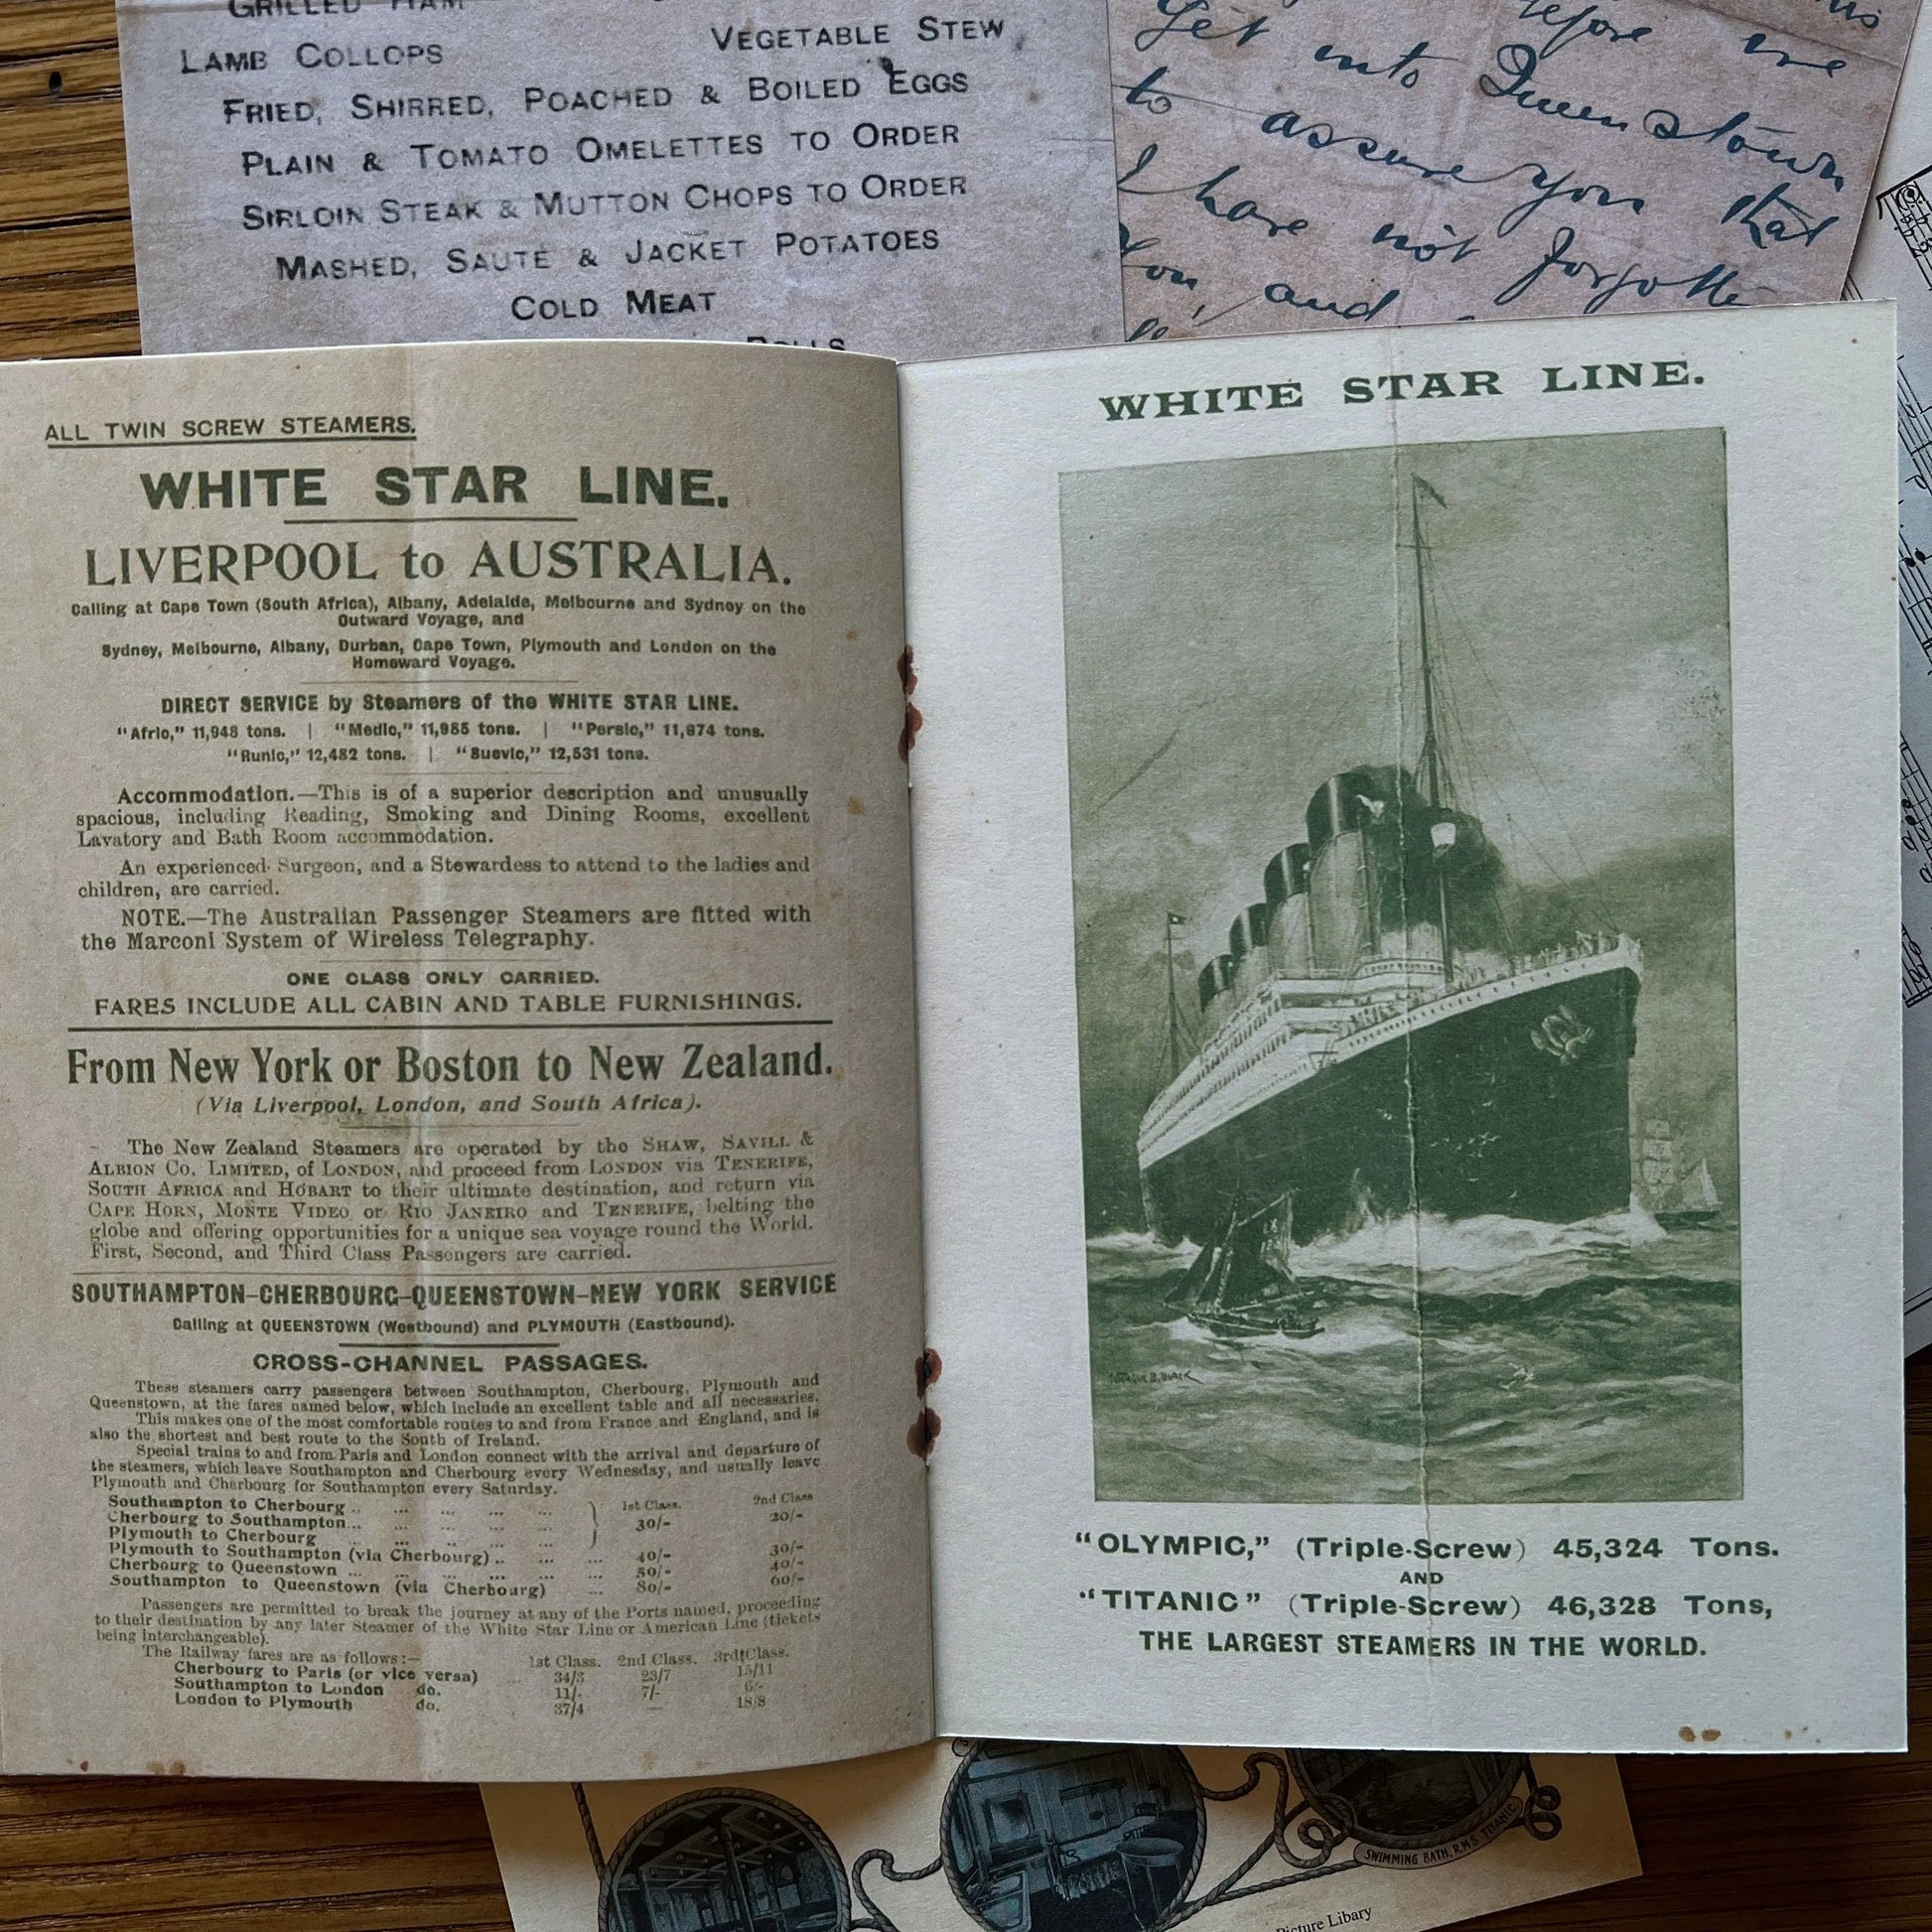 GRILLED HAM
LAMB COLLOPS
VEGETABLE STEW
FRIED, SHIRRED, POACHED & BOILED EGGS
PLAIN & TOMATO OMELETTES TO ORDER
SIRLOIN STEAK & MUTTON CHOPS TO ORDER
MASHED, SAUTÉ & JACKET POTATOES
COLD MEAT
ROLLS
before we
get into Queenstown
to assure you that
I have not forgotte
you, and
ALL TWIN SCREW STEAMERS.
WHITE STAR LINE.
LIVERPOOL to AUSTRALIA.
Calling at Cape Town (South Africa), Albany, Adelaide, Melbourne and Sydney on the
Outward Voyage, and
Sydney, Melbourne, Albany, Durban, Cape Town, Plymouth and London on the
Homeward Voyage.
DIRECT SERVICE by Steamers of the WHITE STAR LINE.
"Afric," 11,948 tons. | "Medic," 11,985 tons. | "Persic," 11,974 tons.
"Runic," 12,482 tons. | "Suevic," 12,531 tons.
Accommodation.—This is of a superior description and unusually
spacious, including Reading, Smoking and Dining Rooms, excellent
Lavatory and Bath Room accommodation.
An experienced Surgeon, and a Stewardess to attend to the ladies and
children, are carried.
NOTE.—The Australian Passenger Steamers are fitted with
the Marconi System of Wireless Telegraphy.
ONE CLASS ONLY CARRIED.
FARES INCLUDE ALL CABIN AND TABLE FURNISHINGS.
From New York or Boston to New Zealand.
(Via Liverpool, London, and South Africa).
The New Zealand Steamers are operated by the SHAW, SAVILL &
ALBION CO. LIMITED, of LONDON, and proceed from LONDON via TENERIFE,
SOUTH AFRICA and HOBART to their ultimate destination, and return via
CAPE HORN, MONTE VIDEO or RIO JANEIRO and TENERIFE, belting the
globe and offering opportunities for a unique sea voyage round the World.
First, Second, and Third Class Passengers are carried.
SOUTHAMPTON-CHERBOURG-QUEENSTOWN-NEW YORK SERVICE
Calling at QUEENSTOWN (Westbound) and PLYMOUTH (Eastbound).
CROSS-CHANNEL PASSAGES.
These steamers carry passengers between Southampton, Cherbourg, Plymouth and
Queenstown, at the fares named below, which include an excellent table and all necessaries.
This makes one of the most comfortable routes to and from France and England, and is
also the shortest and best route to the South of Ireland.
Special trains to and from Paris and London connect with the arrival and departure of
the steamers, which leave Southampton and Cherbourg every Wednesday, and usually leave
Plymouth and Cherbourg for Southampton every Saturday.
1st Class. 2nd Class
Southampton to Cherbourg .. ... ... ... ...
Cherbourg to Southampton ... ... ... ... ... } 30/- 20/-
Plymouth to Cherbourg ... ... ... ... ...
Plymouth to Southampton (via Cherbourg) .. ... ... 40/- 30/-
Cherbourg to Queenstown ... ... ... ... ... ... 50/- 40/-
Southampton to Queenstown (via Cherbourg) ... 80/- 60/-
Passengers are permitted to break the journey at any of the Ports named, proceeding
to their destination by any later Steamer of the White Star Line or American Line (tickets
being interchangeable).
The Railway fares are as follows:— 1st Class. 2nd Class. 3rd Class.
Cherbourg to Paris (or vice versa) 34/3 23/7 15/11
Southampton to London do. 11/- 7/- 6/-
London to Plymouth do. 37/4 — 18/8
WHITE STAR LINE.
MONTAGUE B. BLACK
"OLYMPIC," (Triple-Screw) 45,324 Tons.
AND
"TITANIC" (Triple-Screw) 46,328 Tons,
THE LARGEST STEAMERS IN THE WORLD.
SWIMMING BATH, R.M.S. TITANIC
Picture Libary